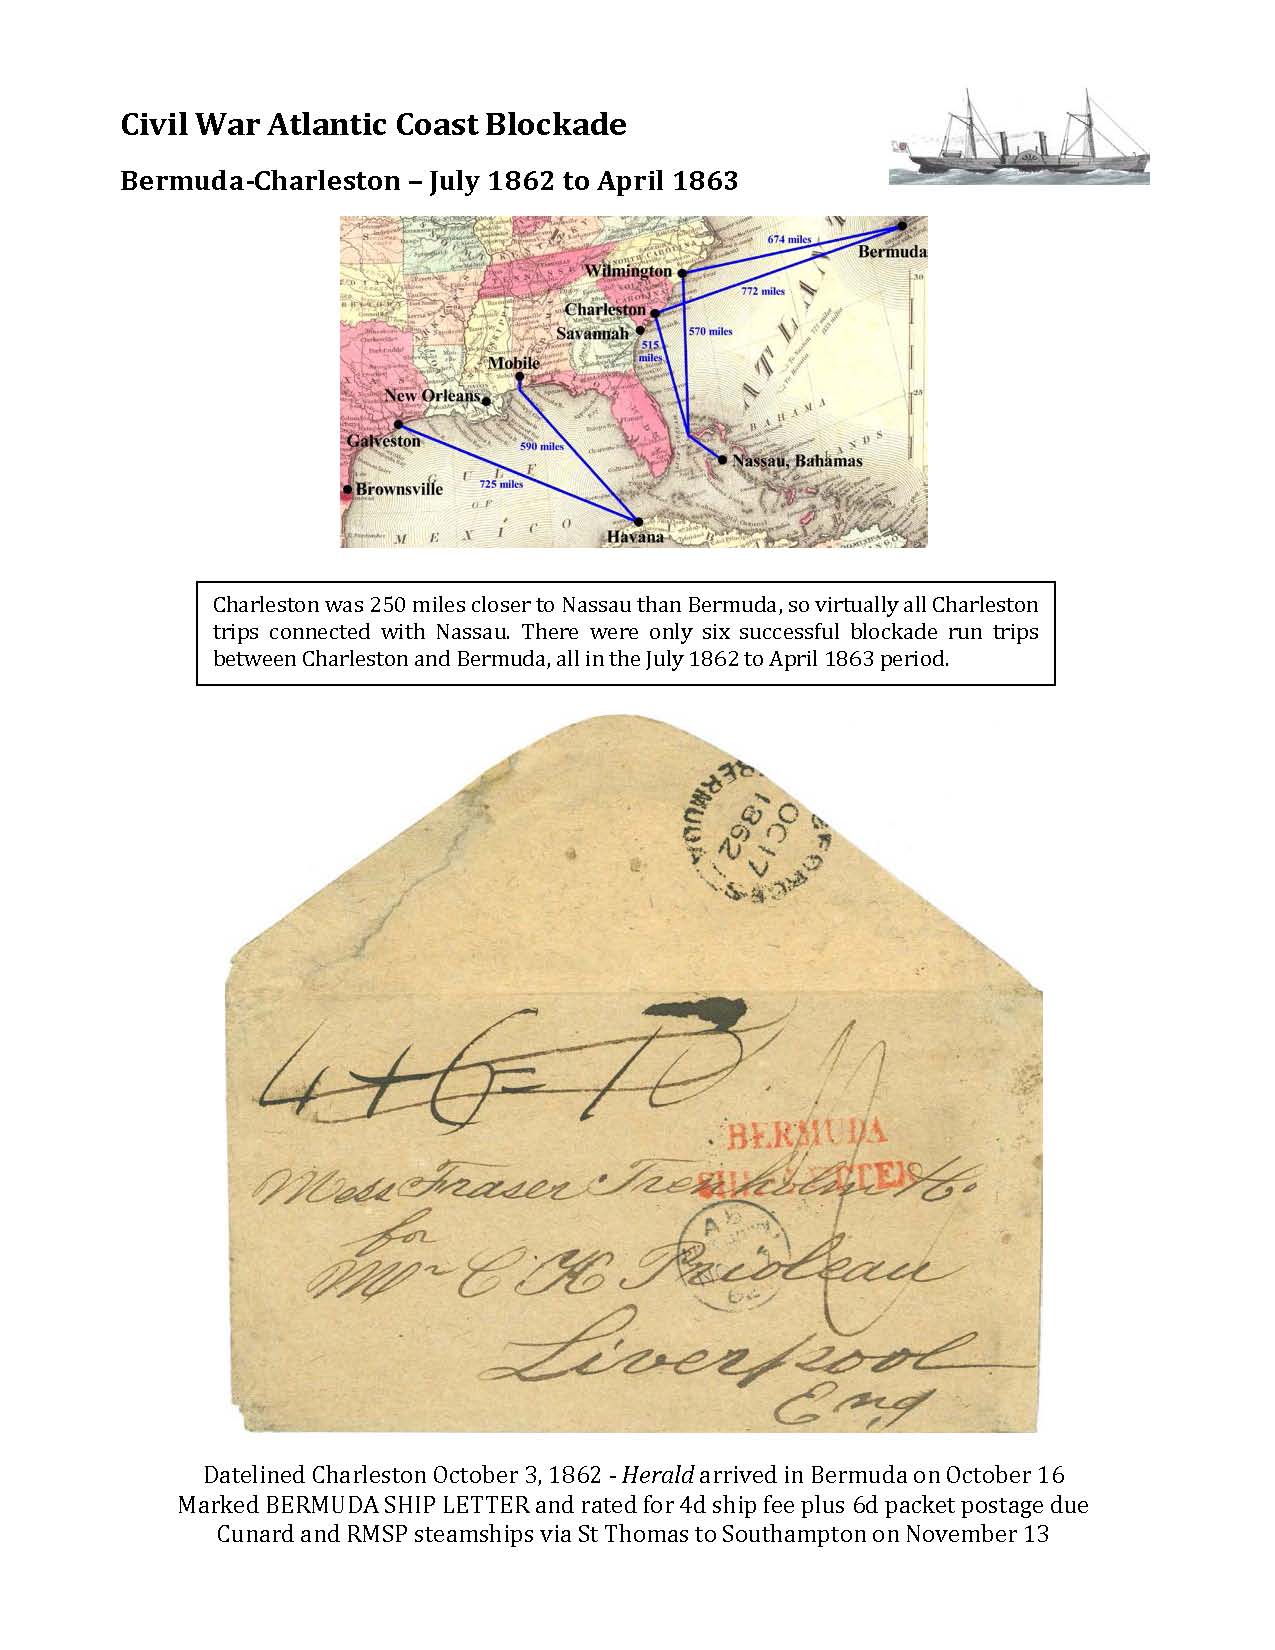 Civil War Atlantic Coast Blockade
Bermuda-Charleston – July 1862 to April 1863
674 miles
Bermuda
Wilmington
772 miles
Charleston
Savannah
570 miles
515 miles
Mobile
New Orleans
Galveston
590 miles
Nassau, Bahamas
BAHAMA
725 miles
Brownsville
GULF
OF
MEXICO
Havana
Charleston was 250 miles closer to Nassau than Bermuda, so virtually all Charleston
trips connected with Nassau. There were only six successful blockade run trips
between Charleston and Bermuda, all in the July 1862 to April 1863 period.
BERMUDA
OC 17
1862
4+6=10
BERMUDA
SHIP LETTER
Mess Fraser Trenholm & Co.
for
Mr C K Prioleau
62
Liverpool
Eng
Datelined Charleston October 3, 1862 - Herald arrived in Bermuda on October 16
Marked BERMUDA SHIP LETTER and rated for 4d ship fee plus 6d packet postage due
Cunard and RMSP steamships via St Thomas to Southampton on November 13